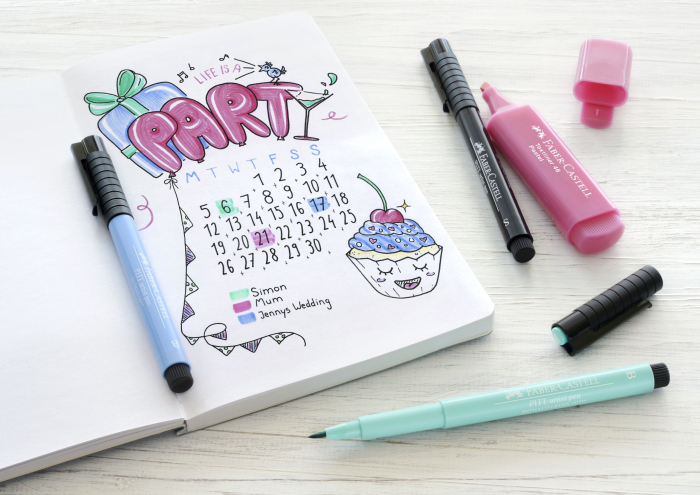 LIFE IS A
PARTY
M T W T F S S
1 2 3 4
5 6 7 8 9 10 11
12 13 14 15 16 17 18
19 20 21 22 23 24 25
26 27 28 29 30
Simon
Mum
Jennys Wedding
FABER-CASTELL
Textliner 46
Pastel
S
FABER-CASTELL
PITT artist pen
B